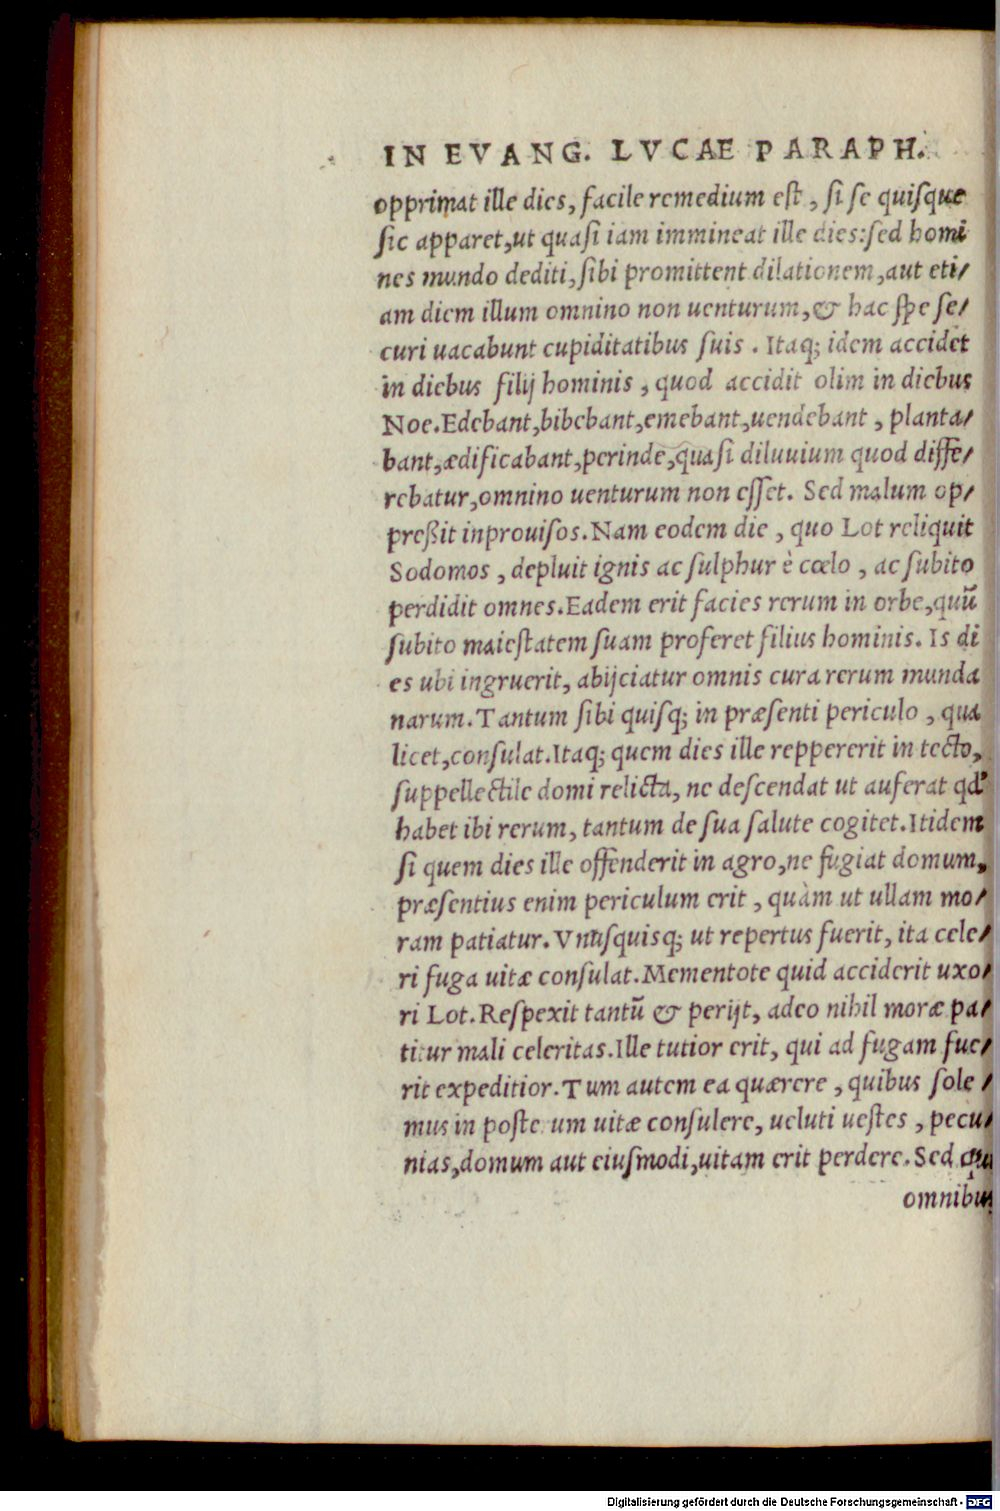 IN EVANG. LVCAE PARAPH.
opprimat ille dies, facile remedium est, si se quisque
sic apparet, ut quasi iam immineat ille dies: sed homi
nes mundo dediti, sibi promittent dilationem, aut eti/
am diem illum omnino non uenturum, & hac spe se/
curi uacabunt cupiditatibus suis. Itaq; idem accidet
in diebus filij hominis, quod accidit olim in diebus
Noe. Edebant, bibebant, emebant, uendebant, planta/
bant, ædificabant, perinde, quasi diluuium quod diffe/
rebatur, omnino uenturum non esset. Sed malum op/
preßit inprouisos. Nam eodem die, quo Lot reliquit
Sodomos, depluit ignis ac sulphur è cœlo, ac subito
perdidit omnes. Eadem erit facies rerum in orbe, quũ
subito maiestatem suam proferet filius hominis. Is di
es ubi ingruerit, abijciatur omnis cura rerum munda
narum. Tantum sibi quisq; in præsenti periculo, qua
licet, consulat. Itaq; quem dies ille reppererit in tecto,
suppellectile domi relicta, ne descendat ut auferat qd'
habet ibi rerum, tantum de sua salute cogitet. Itidem
si quem dies ille offenderit in agro, ne fugiat domum,
præsentius enim periculum erit, quàm ut ullam mo/
ram patiatur. Vnusquisq; ut repertus fuerit, ita cele/
ri fuga uitæ consulat. Mementote quid acciderit uxo/
ri Lot. Respexit tantũ & perijt, adeo nihil moræ pa/
titur mali celeritas. Ille tutior erit, qui ad fugam fue/
rit expeditior. Tum autem ea quærere, quibus sole/
mus in posterum uitæ consulere, ueluti uestes, pecu/
nias, domum aut eiusmodi, uitam erit perdere. Sed
omnibus
Digitalisierung gefördert durch die Deutsche Forschungsgemeinschaft - DFG